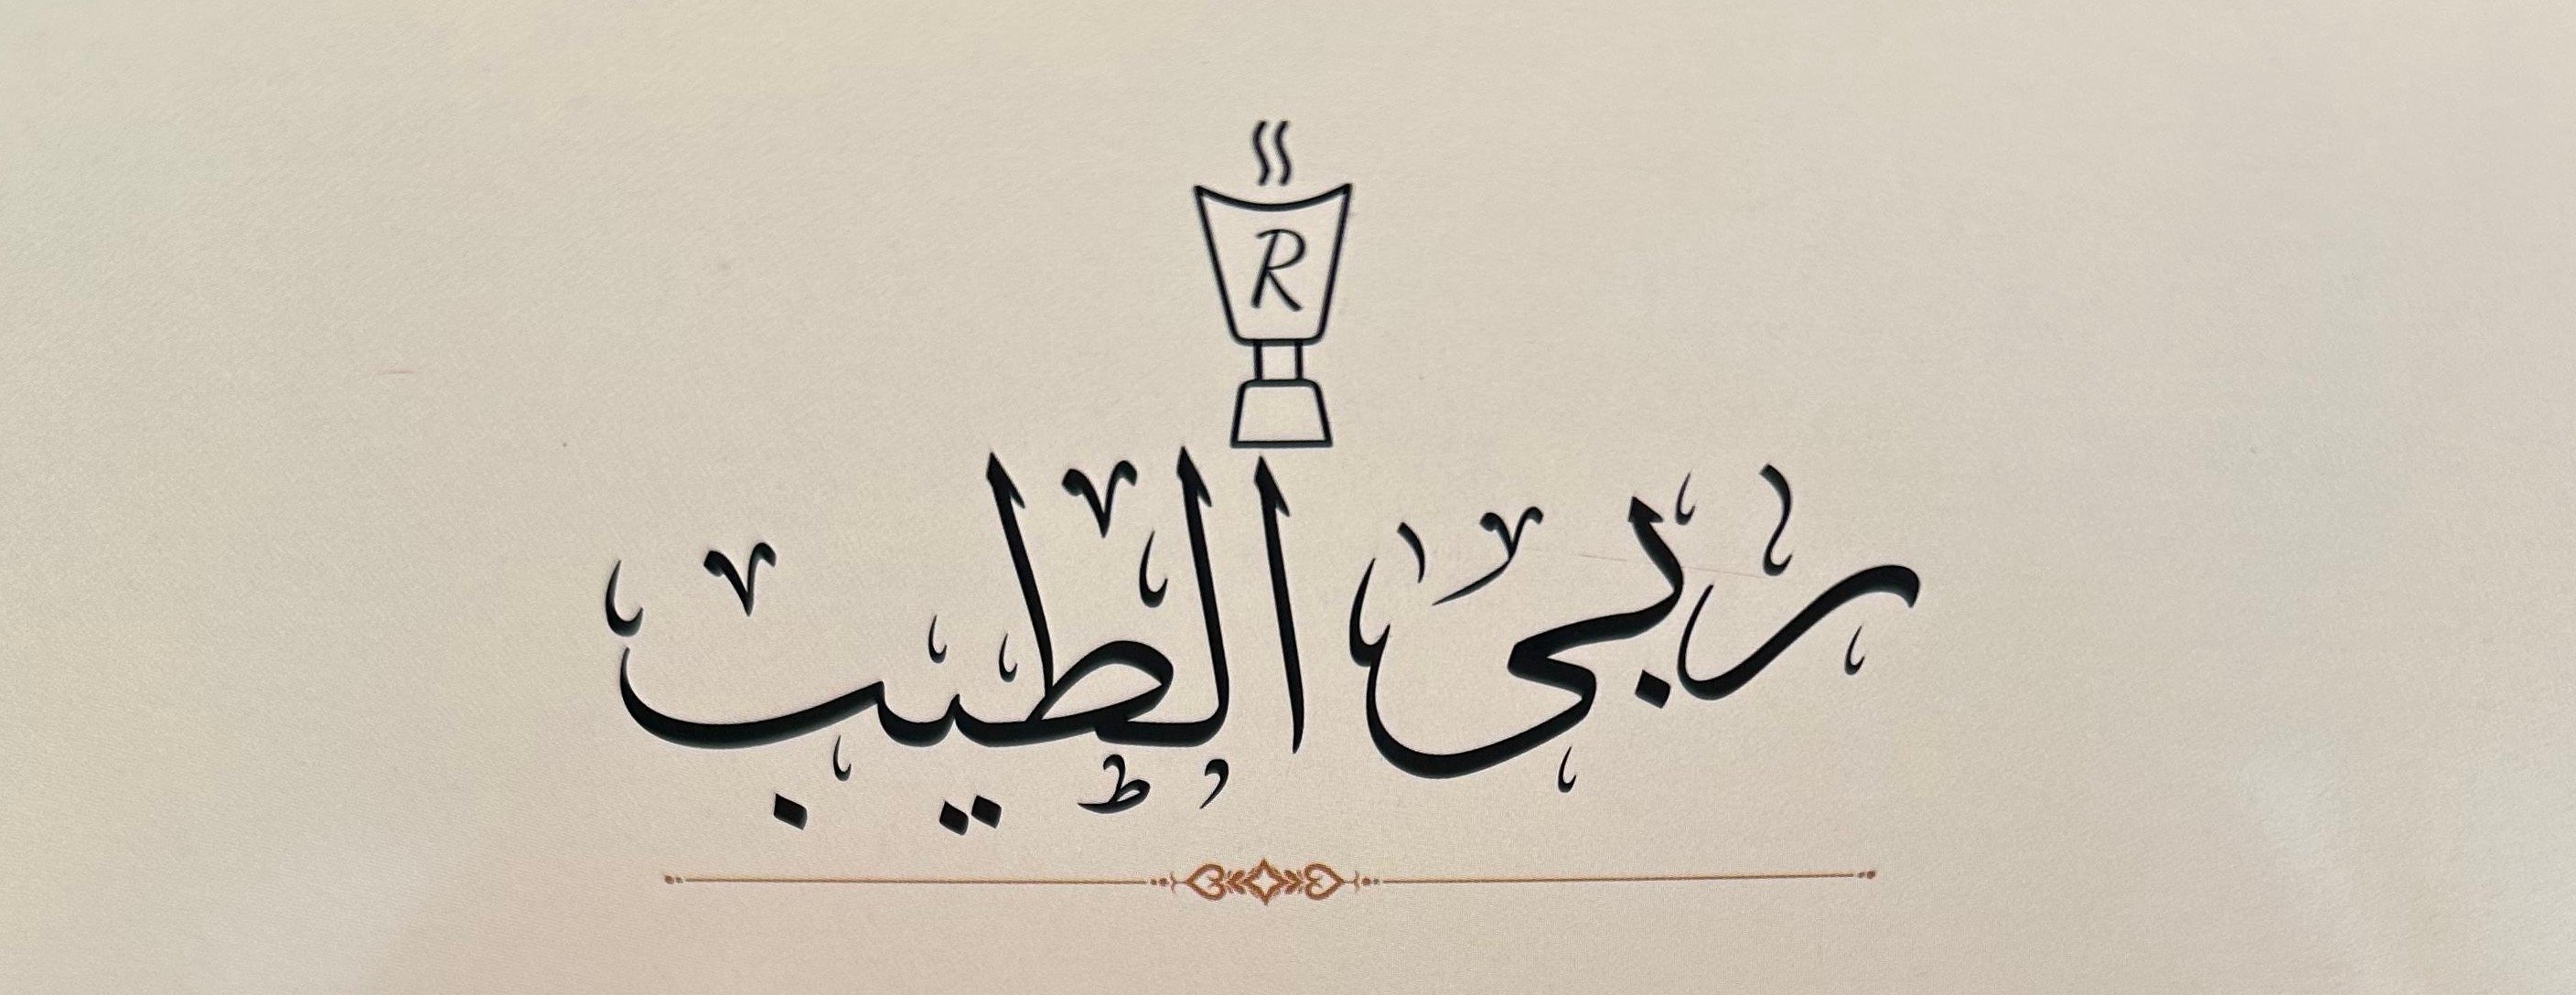 R
ربى الطيب